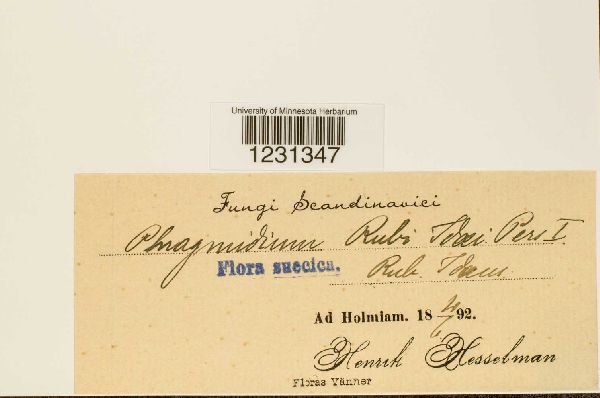 University of Minnesota Herbarium
1231347
Fungi Scandinavici
Phragmidium Rubi Idæi Pers I.
Flora suecica.
Rub. Idæus
Ad Holmiam. 18 92.
Henrik Hesselman
Floras Vänner